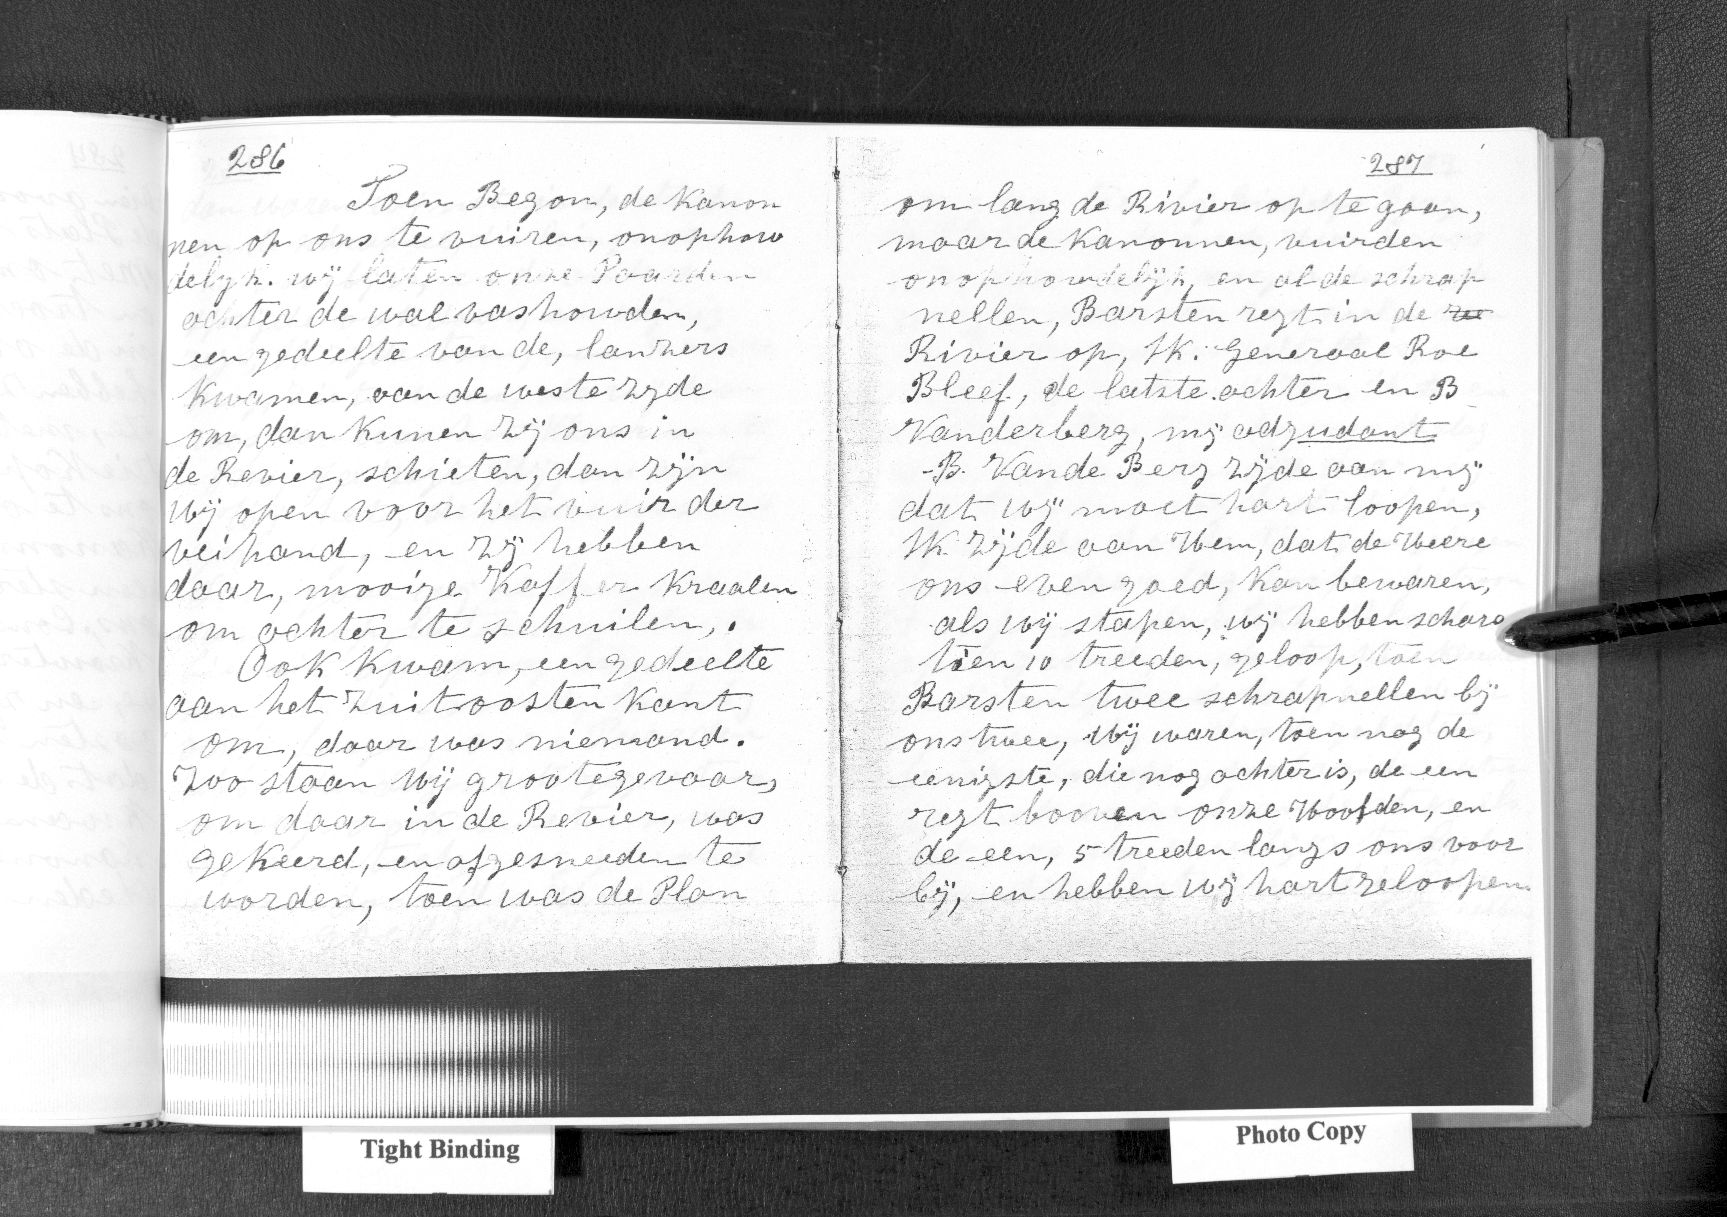 286
Toen Begon, de Kanon
nen op ons te vuiren, onophow
delyk. wij laten onze Paarden
achter de wal vashowden,
een gedeelte van de, lansers
Kwamen, van de weste zyde
om, dan Kunen zij ons in
de Revier, schieten, dan zijn
wij open voor het vuir der
veihand, en zij hebben
daar, mooige Kaffer Kraalen
om achter te schuilen,.
Ook Kwam, een gedeelte
aan het zuitoosten Kant
om, daar was niemand.
zoo staan wij grootegevaar,
om daar in de Revier, was
geKeerd, en afgesneeden te
worden, toen was de Plan
287
om lang de Rivier op te gaan,
maar de Kanonnen, vuirden
onophowdelijk, en al de schrap
nellen, Barsten regt in de
Rivier op, Ik. Generaal Roe
Bleef, de latste achter en B
Vanderberg, mij adzudant
B. Vande Berg zijde aan mij
dat wij moet hart loopen,
Ik zijde aan Hem, dat de Heere
ons even goed, Kan bewaren,
als wij stapen, wij hebben schars
tien 10 treeden, geloop, toen
Barsten twee schrapnellen bij
ons twee, wij waren, toen nog de
eenigste, die nog achter is, de een
regt booven onze Hoofden, en
de een, 5 treeden langs ons voor
bij, en hebben wij hart geloopen.
Tight Binding
Photo Copy